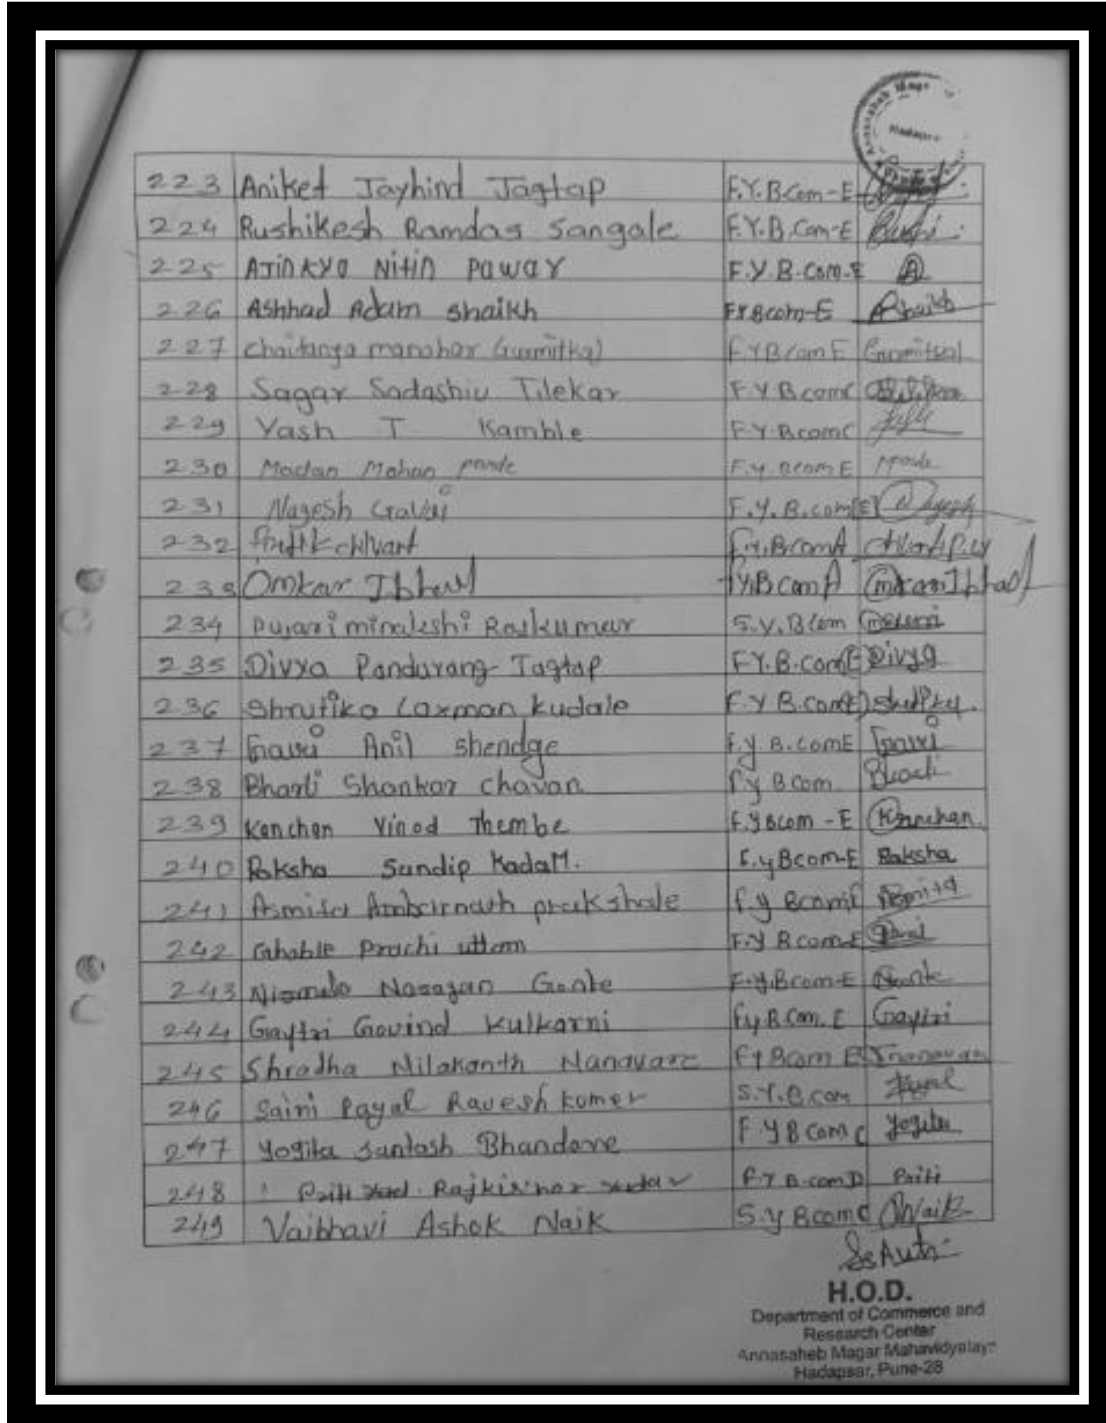 Annasaheb Magar
Hadapsar
223 Aniket Jayhind Jagtap F.Y.B.Com-E
224 Rushikesh Ramdas Sangale F.Y.B.Com-E Rushi
225 Ajinkya Nitin Pawar F.Y.B.Com-E A
226 Ashhad Adam Shaikh F.Y Bcom-E Shaikh
227 Chaitanya manohar F.Y B com E
228 Sagar Sadashiv Tilekar F.Y B.com C
229 Yash T Kamble F.Y.B.com C
230 Madan Mohan F.y. Bcom E
231 Nagesh F.Y.B.com [E] Nagesh
232 F.Y.B com A
233 Omkar F.Y.B com A Omkar
234 Pujari minakshi Rajkumar S.Y.B Com
235 Divya Pandurang Jagtap F.Y.B.Com(E) Divya
236 Shrutika Laxman kudale F.Y B.com(E)
237 Gauri Anil Shendge F.y B.com E Gauri
238 Bharti Shankar chavan F.y B com Bharti
239 Kanchan Vinod Thembe F.Y Bcom - E Kanchan
240 Raksha Sandip Kadam. F.y Bcom-E Raksha
241 Asmita Ambarnath F.y Bcom E Asmita
242 Prachi uttam F.y B com-E
243 Nirmala Narayan F.Y.Bcom-E
244 Gaytri Govind Kulkarni F.y.B.Com.E Gaytri
245 Shradha Nilakanth Nanavare F.Y Bcom E
246 Saini Payal S.Y.B.com Payal
247 Yogita Santosh F.Y B Com C Yogita
248 Priti Rajkishor Yadav F.Y B-com D Priti
249 Vaibhavi Ashok Naik S.y Bcom C Naik
H.O.D.
Department of Commerce and
Research Center
Annasaheb Magar Mahavidyalay
Hadapsar, Pune-28